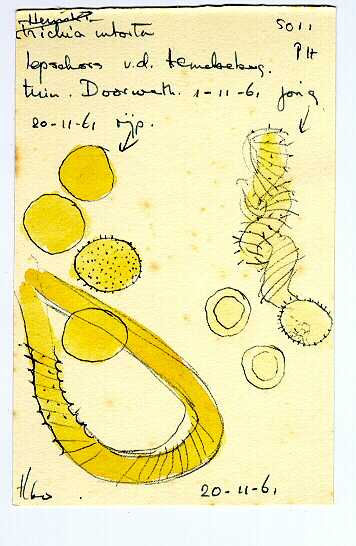 Trichia intorta
5011
PH
iepschors v.d. Hemelseberg.
tuin. Doorwerth. 1-11-61 jong
20-11-61 rijp.
20-11-61